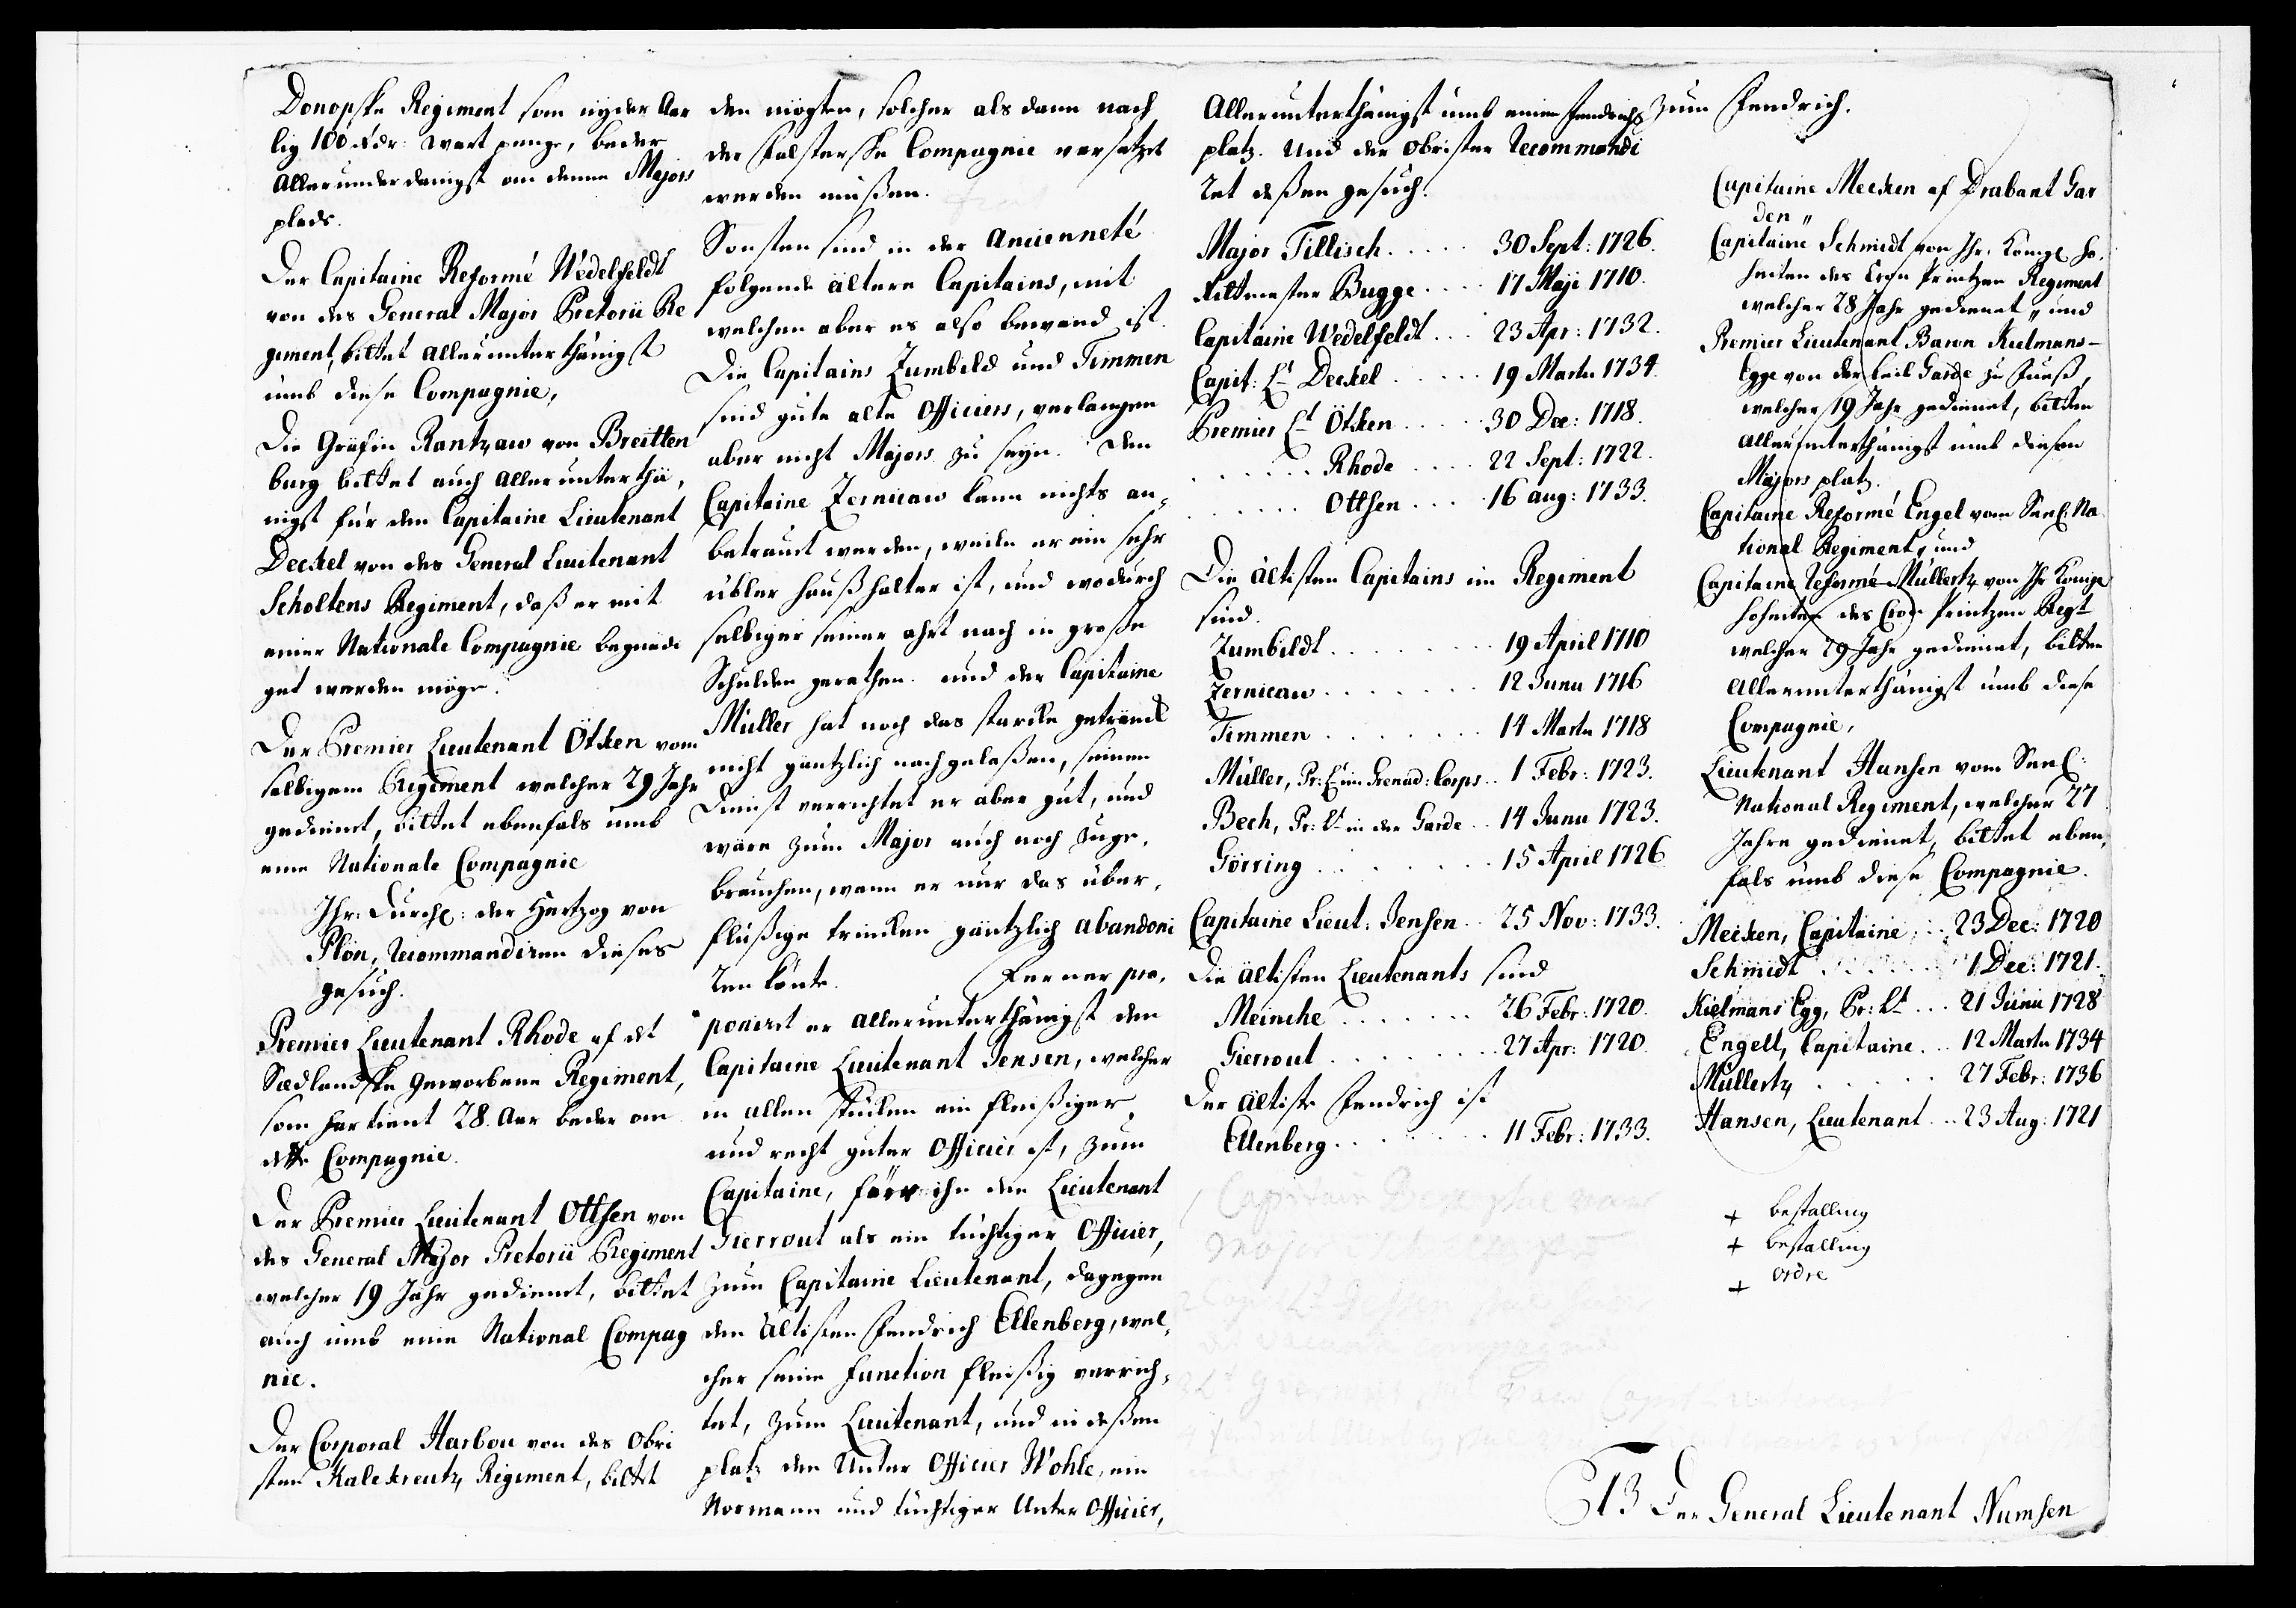 Donopske Regiment som nyder Aar
lig 100 Rdr: Wart penge, beder
Allerunderdanigst om denne Majors
plads.
Der Capitaine Reformé Wedelfeldt
von des General Major Pretorii Re
giment, bittet allerunterthänigst
umb diese Compagnie,
Die Gräfin Rantzaw von Breitten
burg bittet auch allerunterthä,
nigst für den Capitaine Lieutenant
Deckel von des General Lieutenant
Scholtens Regiment, daß er mit
einer Nationale Compagnie begnadi
get werden möge.
Der Premier Lieutenant Ötken vom
selbigem Regiment welcher 29 Jahr
gedienet, bittet ebenfals umb
eine Nationale Compagnie
Ihr: Durchl: der Hertzog von
Plön, recommandiren dieses
gesuch.
Premier Lieutenant Rhode af det
Siedlandske geworbene Regiment,
som har tient 28. Aar beder om
dette Compagnie.
Der Premier Lieutenant Ottsen von
des General Major Pretorii Regiment
welcher 19 Jahr gedienet, bittet
auch umb eine National Compag
nie.
Der Corporal Harbou von des Obri
sten Kalckreutz Regiment, bittet
den mögten, solcher als dann nach
der Falsterske Compagnie versetzet
werden müßen.
Sonsten sind in der Ancienneté
folgende ältere Capitains, mit
welchen aber es also bewand ist.
Die Capitains Zumbild und Timmen
sind gute alte Officiers, verlangen
aber nicht Majors zu seyn. Dem
Capitaine Zernicaw kann nichts an,
betrauet werden, weile er ein sehr
übler haußhalter ist, und wodurch
selbiger seiner ahrt nach in große
Schulden gerathen. und der Capitaine
Müller hat noch das starcke geträncke
nicht gäntzlich nachgelaßen, seinen
Dienst verrichtet er aber gut, und
wäre zum Major auch noch zuge,
brauchen, wenn er nur das über,
flüßige trincken gäntzlich abandoni
ren könte. Ferner pro,
poniret er allerunterthänigst den
Capitaine Lieutenant Jensen, welcher
in allen stücken ein fleißiger,
und recht guter Officier ist, zum
Capitaine, für ihn den Lieutenant
Gierrout als ein tüchtiger Officier,
zum Capitaine Lieutenant, dagegen
den ältisten Fendrich Ellenberg, wel,
cher seine Function fleißig verrich,
tet, zum Lieutenant, und in deßen
platz den Unter Officier Wohle, ein
Normann und tüchtiger Unter Officier,
Allerunterthänigst umb einen Fendrichs
platz. Und der Obrister Recommandi
ret deßen gesuch.
Major Tillisch ..... 30 Sept: 1726.
Rittmester Bugge .... 17 Maji 1710.
Capitaine Wedelfeldt ... 23 Apr: 1732.
Capit: Lt Deckel ..... 19 Marty 1734.
Premier Lt Ötken ..... 30 Dec: 1718.
...... Rhode .... 22 Sept: 1722.
...... Ottsen ... 16 aug: 1733.
Die ältisten Capitains im Regiment
sind.
Zumbildt ........ 19 April 1710
Zernicaw ....... 12 Juny 1716
Timmen ........ 14 Marty 1718
Müller, Pr: Lt im Grenad: Corps .. 1 Febr: 1723.
Bech, Pr: Lt in der Garde .. 14 Juny 1723.
Görring ....... 15 April 1726
Capitaine Lieut: Jensen .. 25 Nov: 1733.
Die ältisten Lieutenants sind
Meinche ....... 26 Febr: 1720.
Gierrout ....... 27 Apr: 1720.
Der ältiste Fendrich ist
Ellenberg ....... 11 Febr: 1733.
zum Fendrich.
Capitaine Mecken af Drabant Gar
den"
Capitaine Schmidt von Ihr: Königl Ho,
heiten des Cron Printzen Regiment
welcher 28 Jahr gedienet, und
Premier Lieutenant Baron Kielmans-
Egge von der Leib Garde zu Fueß,
welcher 19 Jahr gedienet, bitten
allerunterthänigst umb diesen
Majors platz.
Capitaine Reformé Engel vom Seel: Na
tional Regiment, und
Capitaine Reformé Müllertz von Ihr Königl
Hoheiten des Cron Printzen Regt
welcher 29 Jahr gedienet, bitten
allerunterthänigst umb diese
Compagnie,
Lieutenant Hansen vom Seel:
National Regiment, welcher 27
Jahre gedienet, bittet eben,
fals umb diese Compagnie.
Mecken, Capitaine .... 23 Dec: 1720
Schmidt ....... 1 Dec: 1721.
Kielmans Egg, Pr: Lt ... 21 Juny 1728
Engell, Capitaine ... 12 Marty 1734
Müllertz ...... 27 Febr: 1736
Hansen, Lieutenant .. 23 Aug: 1721
+ bestalling
+ bestalling
+ ordre
Der General Lieutenant Numsen